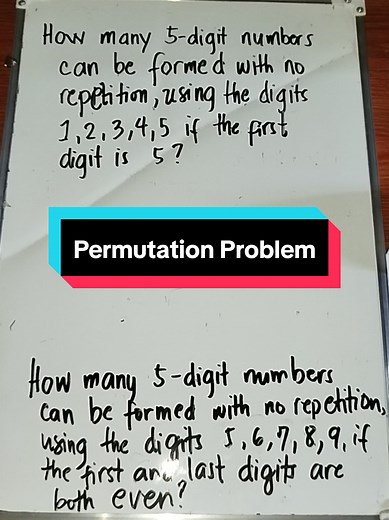 How many 5-digit numbers
can be formed with no
repetition, using the digits
1,2,3,4,5 if the first
digit is 5?
Permutation Problem
How many 5-digit numbers
can be formed with no repetition,
using the digits 5,6,7,8,9, if
the first and last digits are
both even?